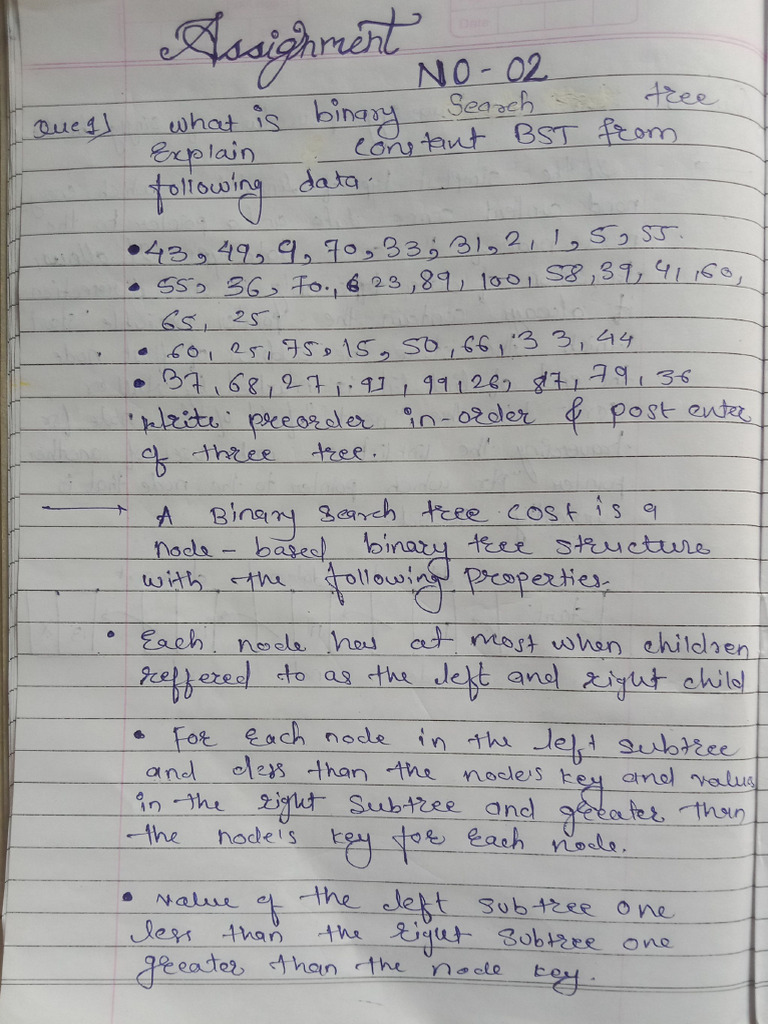 Assignment
NO-02
Que 1) what is binary Search tree
Explain constant BST from
following data.
• 43, 49, 9, 70, 33, 31, 2, 1, 5, 55.
• 55, 36, 70, 23, 89, 100, 58, 39, 41, 60,
65, 25.
• 60, 25, 75, 15, 50, 66, 33, 44
• 37, 68, 27, 91, 99, 26, 87, 79, 36
Write preorder in-order & post enter
of three tree.
→ A Binary Search tree cost is a
node-based binary tree structure
with the following properties.
• Each node has at most when children
reffered to as the left and right child
• For Each node in the left subtree
and less than the node's key and value
in the right subtree and greater than
the node's key for each node.
• value of the left subtree one
less than the right subtree one
greater than the node key.